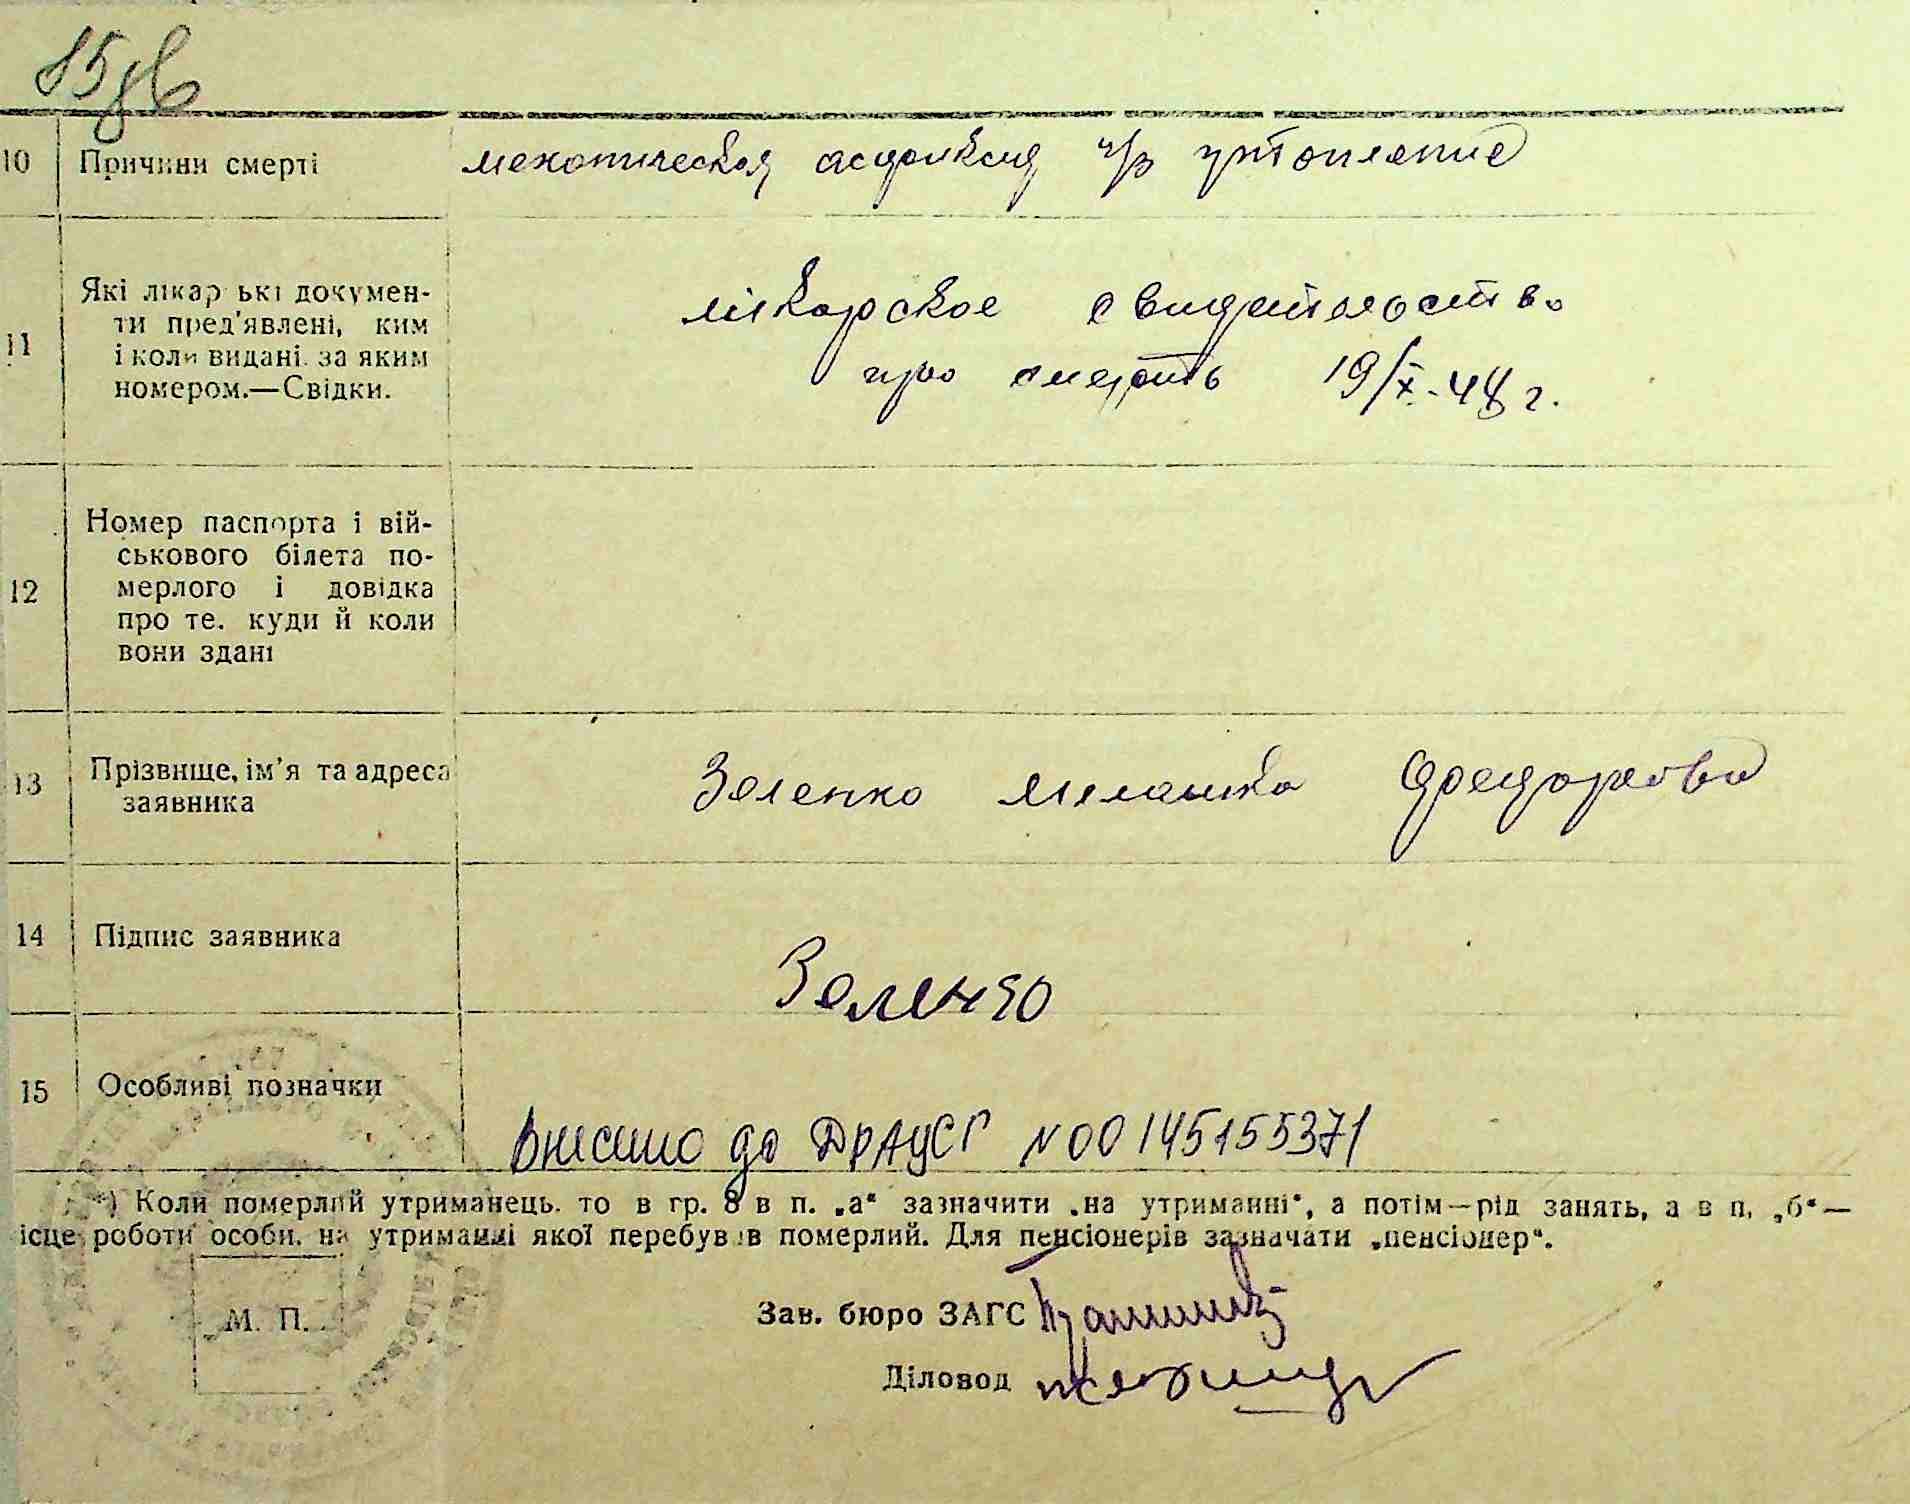 15
10 Причини смерті механическая асфиксия ч/з утопление
11 Які лікарські докумен-
ти пред'явлені, ким
і коли видані. за яким
номером.—Свідки.
лікарское свидительство
про смерть 19/X-48 г.
12 Номер паспорта і вій-
ськового білета по-
мерлого і довідка
про те. куди й коли
вони здані
13 Прізвище, ім'я та адреса
заявника
Зеленко Мелашка Федоровна
14 Підпис заявника
Зеленко
15 Особливі позначки
Внесено до ДРАЦСГ №00145155371
*) Коли померлий утриманець. то в гр. 8 в п. „а“ зазначити „на утриманні“, а потім—рід занять, а в п. „б“—
ісце роботи особи. на утриманні якої перебував померлий. Для пенсіонерів зазначати „пенсіонер“.
М. П.
Зав. бюро ЗАГС
Діловод